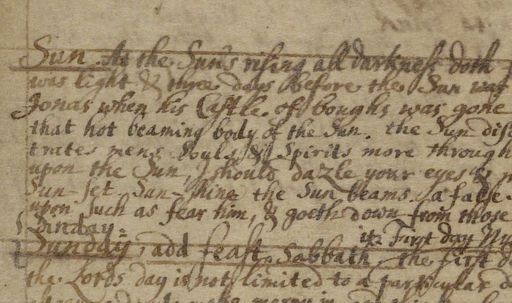 Sun. At the Sun's rising all darkness doth
was light & three days before the Sun was
Jonas when his Castle of boughs was gone
that hot beaming body of the Sun. the Sun dis
trates mens Souls & Spirits more through
upon the Sun, I should dazle your eyes &
Sun-set, Sun-shine the Sun beams. a false
upon such as fear him, & goeth down from those
Sunday. it's First day
Sunday, add feast. Sabbath. the first d
the Lords day is not limited to a particular d